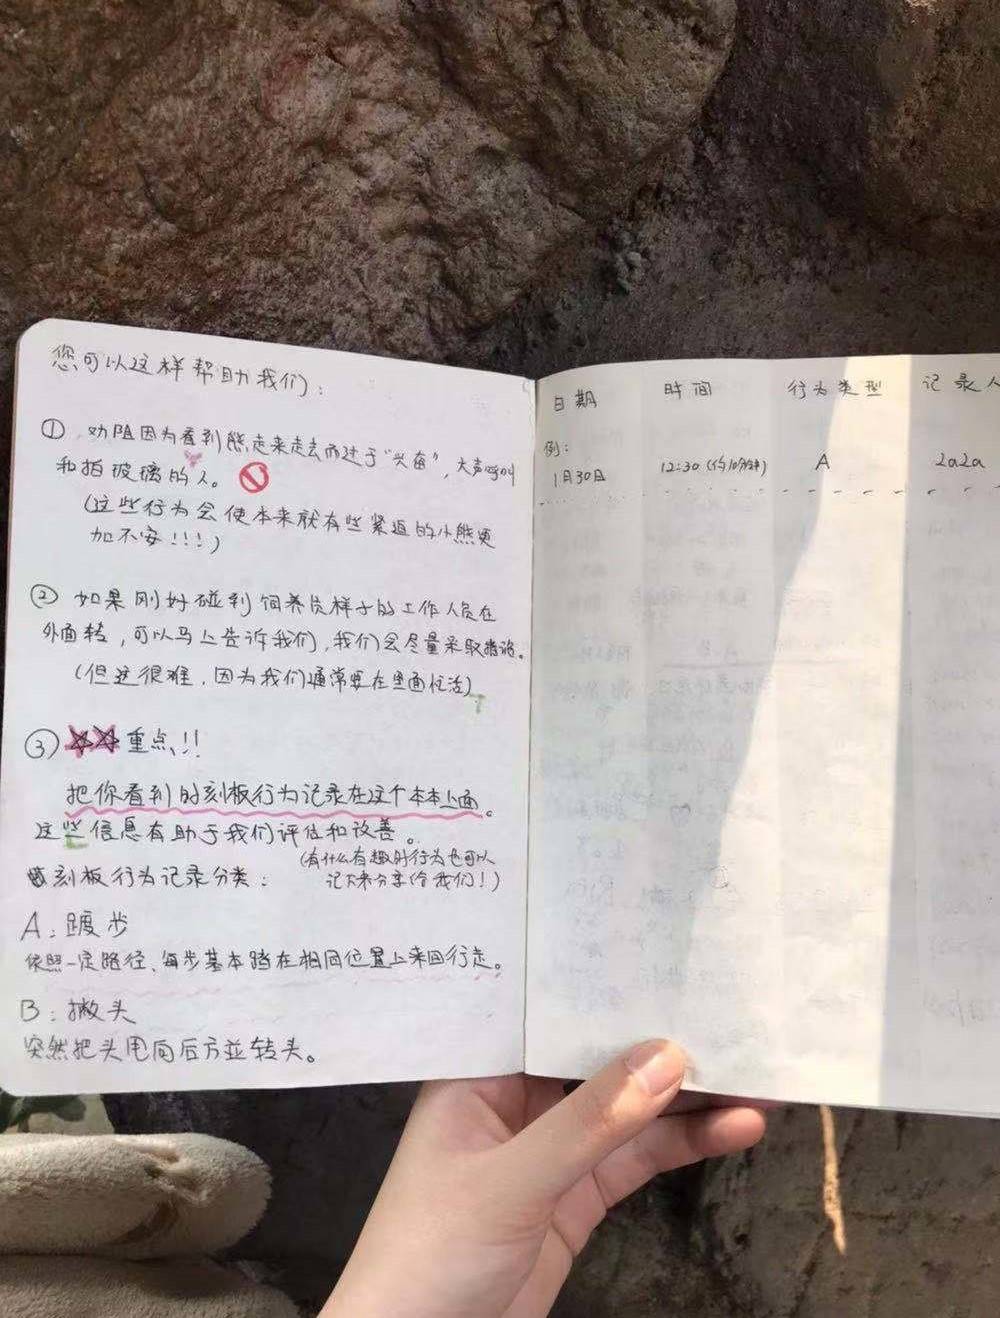 您可以这样帮助我们：
①，劝阻因为看到熊走来走去而过于"兴奋"，大声呼叫
和拍玻璃的人。
（这些行为会使本来就有些紧迫的小熊更
加不安！！！）
②如果刚好碰到饲养员样子的工作人员在
外面转，可以马上告诉我们，我们会尽量采取措施。
（但这很难，因为我们通常要在里面忙活）
③重点！！
把你看到的刻板行为记录在这个本本上面。
这些信息有助于我们评估和改善。
（有什么有趣的行为也可以
记下来分享给我们！）
刻板行为记录分类：
A：踱步
依照一定路径、每步基本踏在相同位置上来回行走。
B：撇头
突然把头甩向后方並转头。
日期 时间 行为类型 记录人
例：
1月30日 12:30（约10分钟） A 2a2a